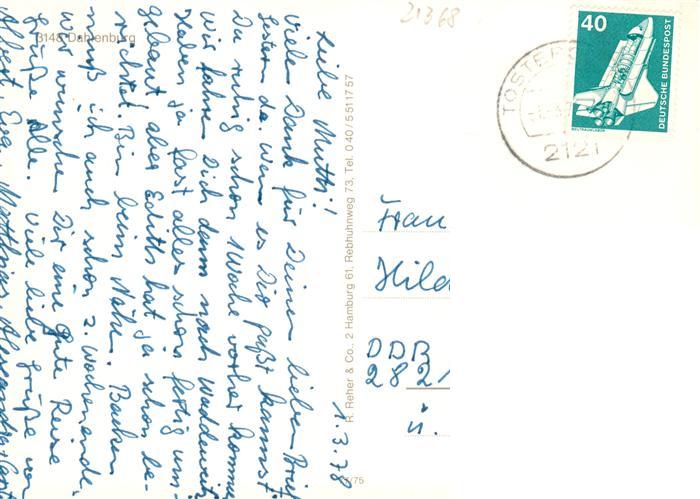 21368
3148 Dahlenburg
1.3.78
Liebe Mutti!
Vielen Dank für Deinen lieben Brief.
Gestern da. Wenn es Dir paßt kannst
Du ruhig schon 1 Woche vorher kommen
Wir fahren Dich dann nach Waddeweitz
Haben ja fast alles schon fertig um-
gebaut aber Edith hat ja schon be-
richtet. Bin beim Nähen. Backen
muß ich auch schon z. Wochenende.
Wir wünschen Dir eine gute Reise
Grüße Alle. Viele liebe Grüße von
Matthias Alexandra
R. Reher & Co., 2 Hamburg 61, Rebhuhnweg 73, Tel. 0 40/5 51 17 57
/75
40
DEUTSCHE BUNDESPOST
WELTRAUMLABOR
TOSTER
2121
Frau
Hild
DDB
2821
ü.